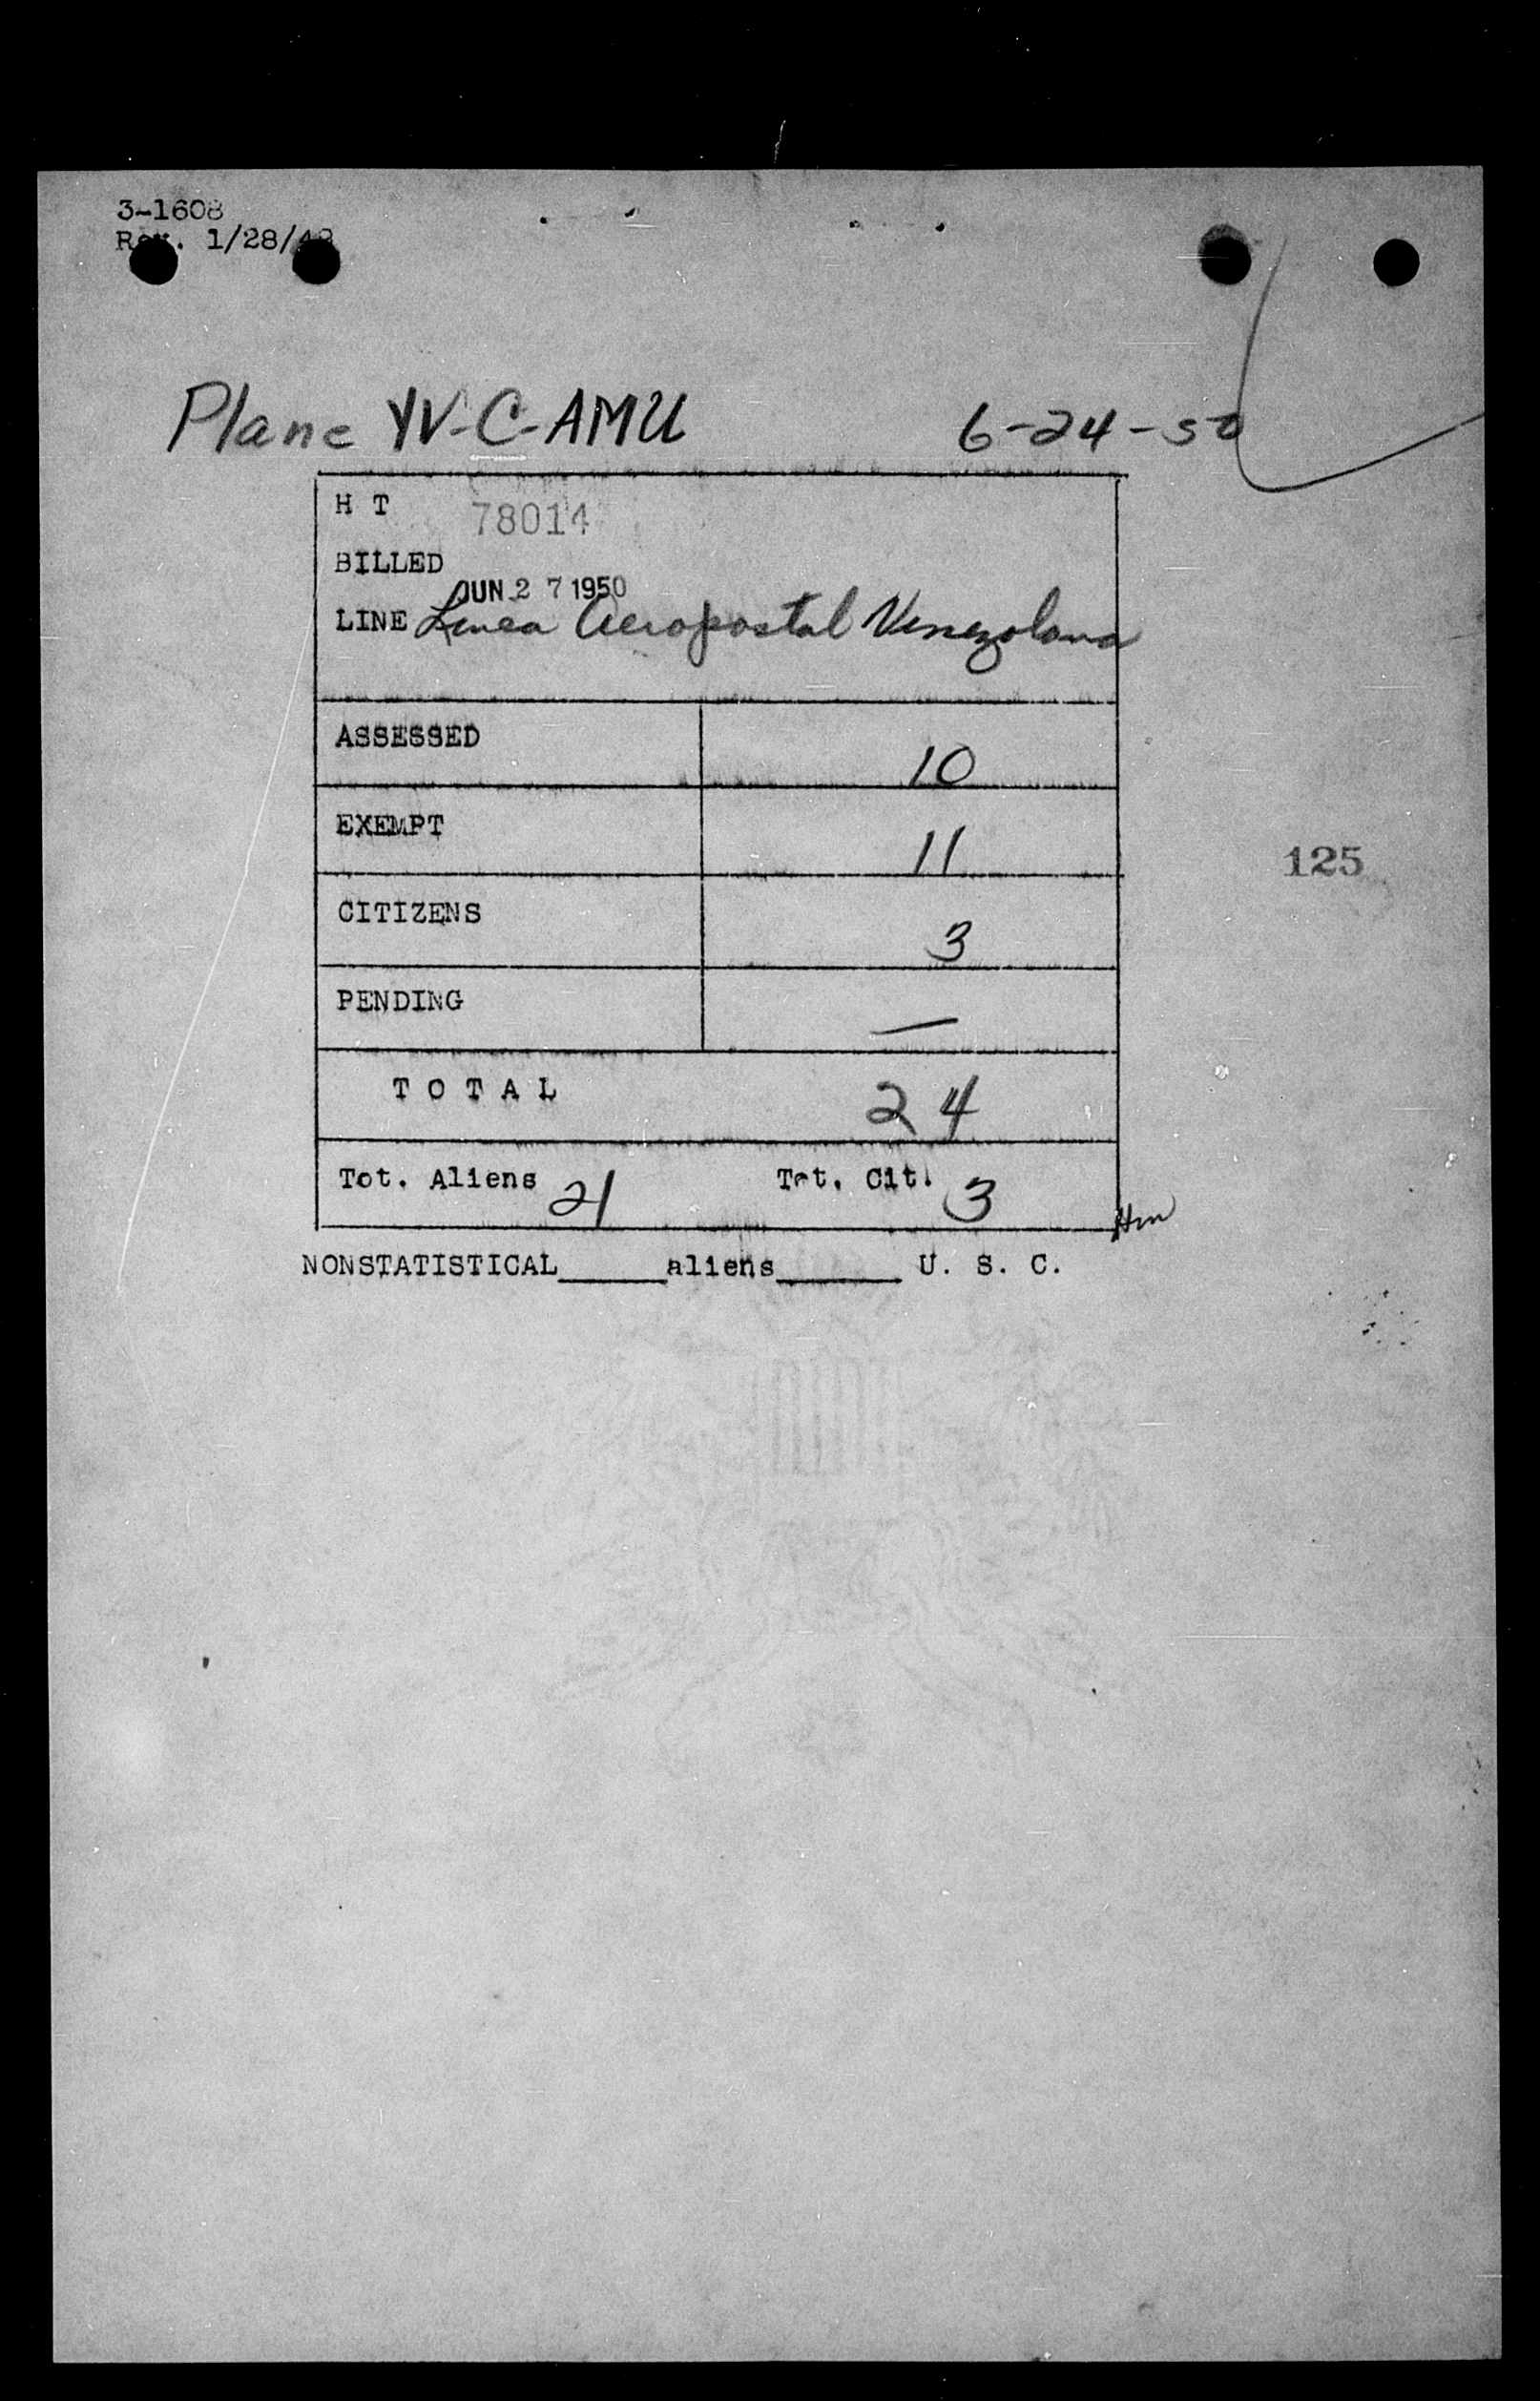 3-1608
Rev. 1/28/48
Plane YV-C-AMU 6-24-50
H T 78014
BILLED
JUN 27 1950
LINE Linea Aeropostal Venezolana
ASSESSED 10
EXEMPT 11
125
CITIZENS 3
PENDING —
T O T A L 24
Tot. Aliens 21 Tot. Cit. 3
Hm
NONSTATISTICAL______aliens_______ U. S. C.